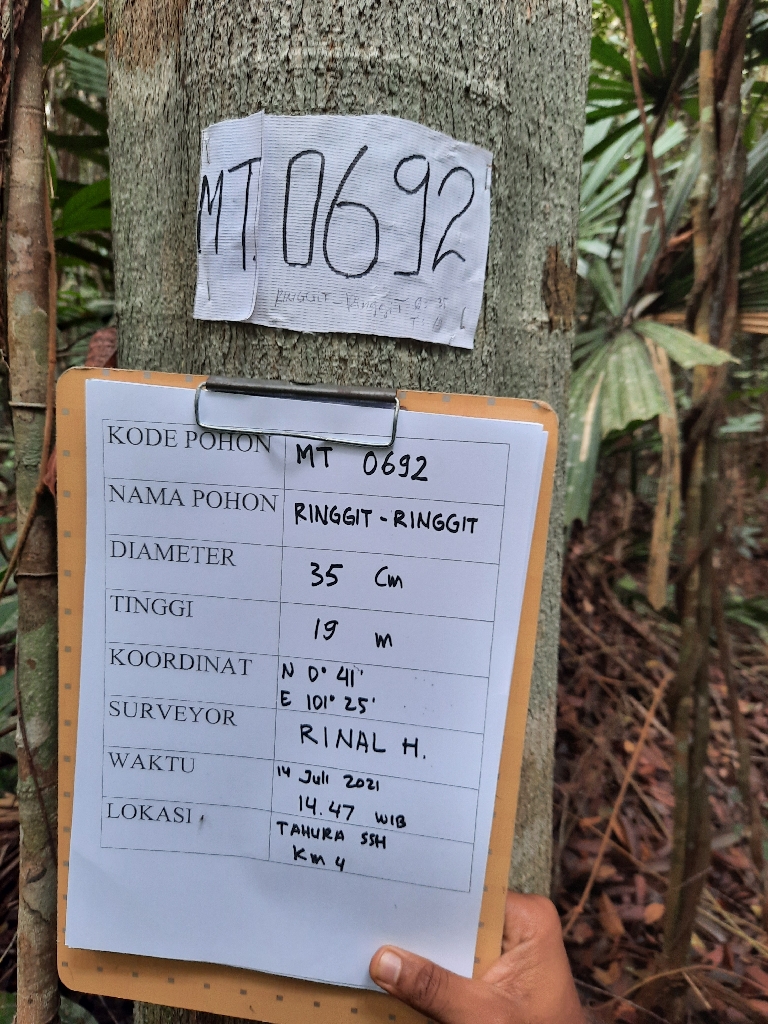 MT. 0692
RINGGIT - RINGGIT
KODE POHON MT 0692
NAMA POHON RINGGIT - RINGGIT
DIAMETER 35 Cm
TINGGI 19 m
KOORDINAT N 0° 41'
E 101° 25'
SURVEYOR RINAL H.
WAKTU 14 Juli 2021
14.47 WIB
LOKASI TAHURA SSH
Km 4